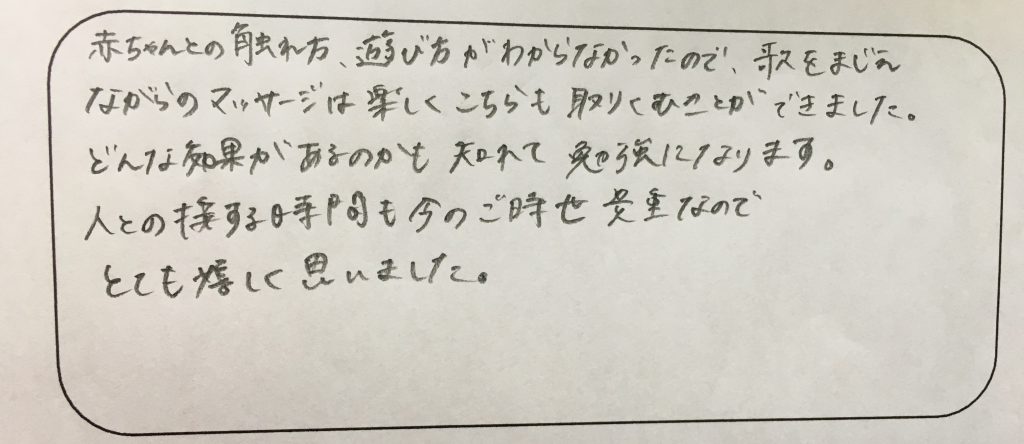 赤ちゃんとの触れ方、遊び方がわからなかったので、歌をまじえ
ながらのマッサージは楽しくこちらも取りくむことができました。
どんな効果があるのかも知れて勉強になります。
人との接する時間も今のご時世貴重なので
とても嬉しく思いました。